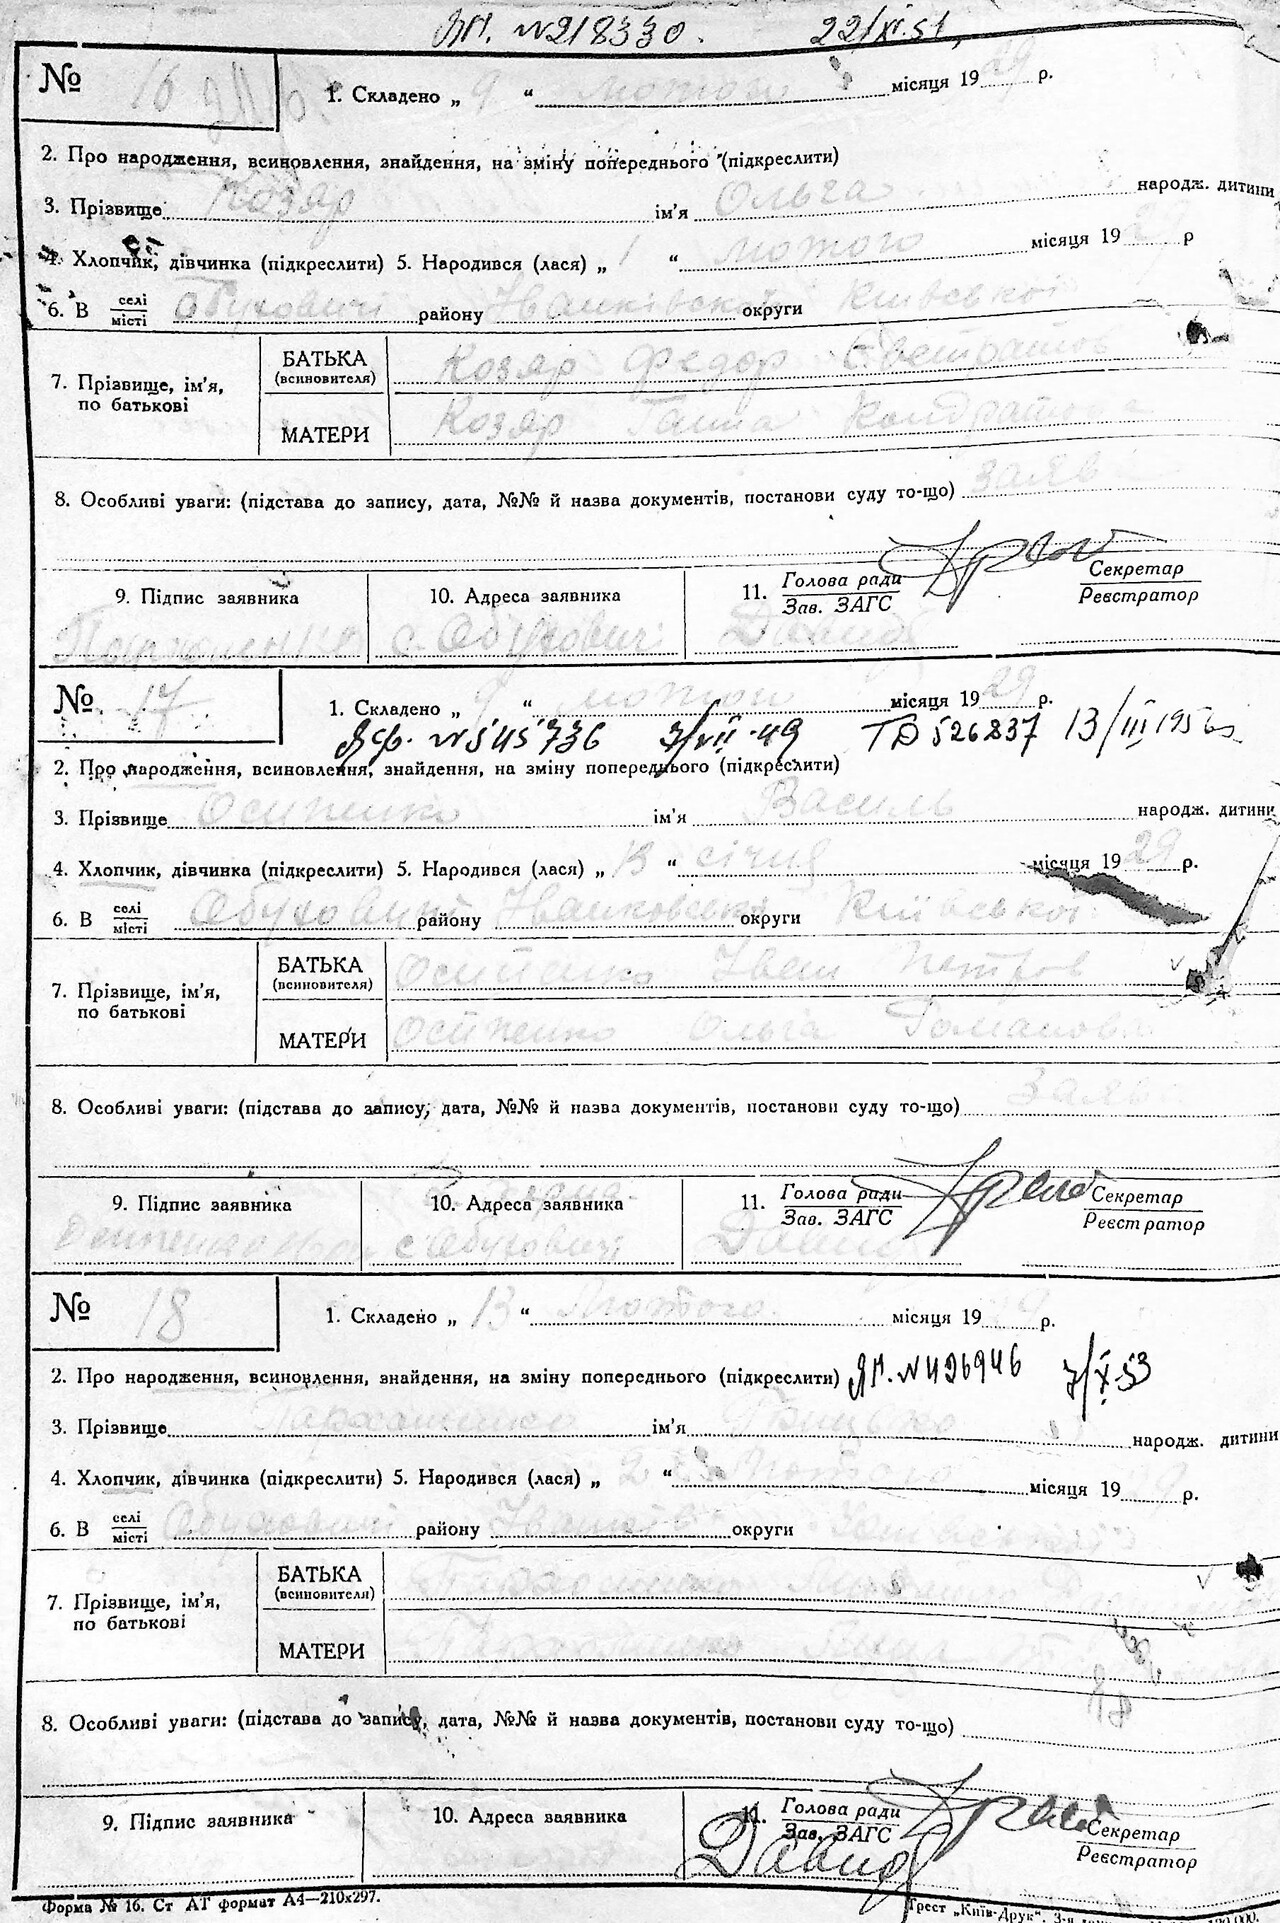 ЯП. №218330. 22/XI.51,
№ 16
1. Складено „ 9 “ лютого місяця 19 29 р.
2. Про народження, всиновлення, знайдення, на зміну попереднього (підкреслити)
3. Прізвище Козяр ім'я Ольга народж. дитини
4. Хлопчик, дівчинка (підкреслити) 5. Народився (лася) „ 1 “ лютого місяця 19 29 р
6. В селі/місті Обуховичі району Іванківськ округи Київської
7. Прізвище, ім'я, по батькові
БАТЬКА (всиновителя) Козяр Федор
МАТЕРИ Козяр Ганна
8. Особливі уваги: (підстава до запису, дата, №№ й назва документів, постанови суду то-що) заява
9. Підпис заявника 10. Адреса заявника 11. Голова ради/Зав. ЗАГС Секретар/Реєстратор
с. Обуховичі Давид
№ 17
1. Складено „ 9 “ лютого місяця 19 29 р.
№545736 7/VII-49 ТД 526837 13/III 195
2. Про народження, всиновлення, знайдення, на зміну попереднього (підкреслити)
3. Прізвище Осипенко ім'я Василь народж. дитини
4. Хлопчик, дівчинка (підкреслити) 5. Народився (лася) „ 13 “ січня місяця 19 29 р.
6. В селі/місті Обуховичі району Іванковськ округи Київської
7. Прізвище, ім'я, по батькові
БАТЬКА (всиновителя) Осипенко Іван Петров
МАТЕРИ Осипенко Ольга Романова
8. Особливі уваги: (підстава до запису, дата, №№ й назва документів, постанови суду то-що) Заява
9. Підпис заявника 10. Адреса заявника 11. Голова ради/Зав. ЗАГС Секретар/Реєстратор
Осипенко с Обуховичі Давид
№ 18
1. Складено „ 13 “ Лютого місяця 19 р.
2. Про народження, всиновлення, знайдення, на зміну попереднього (підкреслити) ЯП. №426946 7/X-53
3. Прізвище Пархоменко ім'я народж. дитини
4. Хлопчик, дівчинка (підкреслити) 5. Народився (лася) „ 2 “ Лютого місяця 19 р.
6. В селі/місті Обуховичі району округи Київської
7. Прізвище, ім'я, по батькові
БАТЬКА (всиновителя) Пархоменко
МАТЕРИ Пархоменко
8. Особливі уваги: (підстава до запису, дата, №№ й назва документів, постанови суду то-що)
9. Підпис заявника 10. Адреса заявника 11. Голова ради/Зав. ЗАГС Секретар/Реєстратор
Давид
Форма № 16. Ст АТ формат А4—210х297. Трест „Київ-Друк“.